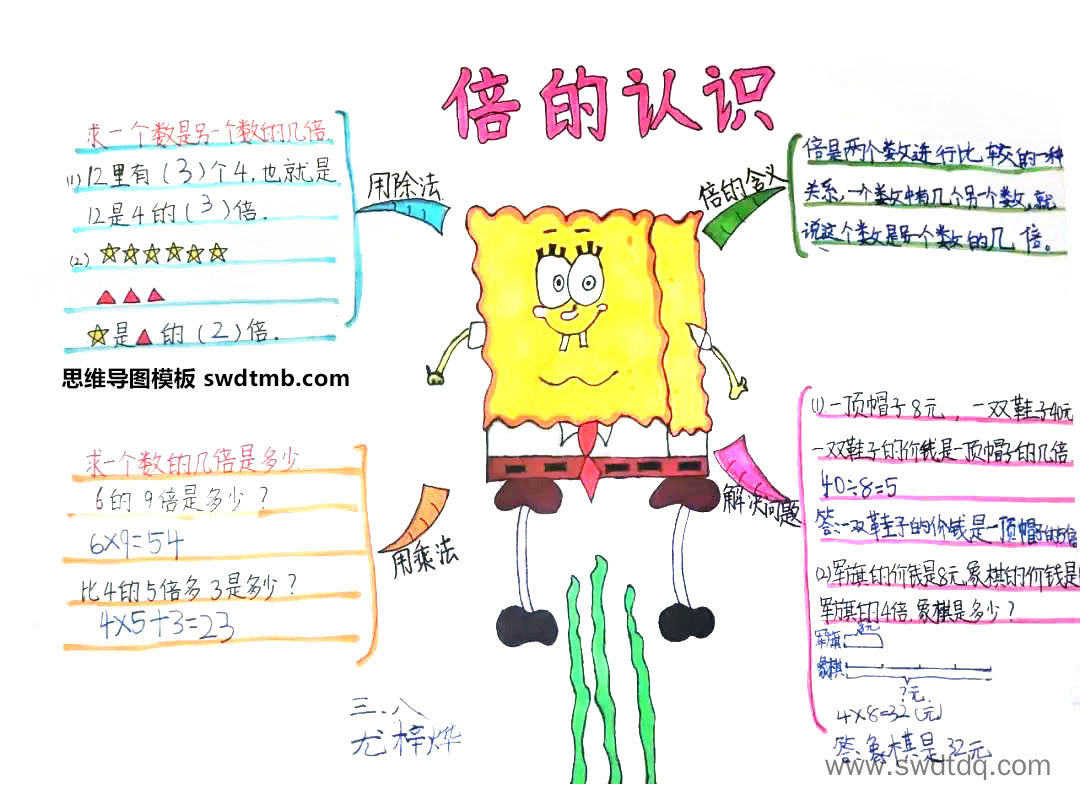 倍的认识
求一个数是另一个数的几倍.
(1) 12里有(3)个4,也就是
12是4的(3)倍.
(2)
是 的(2)倍.
用除法
倍的含义
倍是两个数进行比较的一种
关系,一个数中有几个另一个数,就
说这个数是另一个数的几倍。
思维导图模板 swdtmb.com
求一个数的几倍是多少
6的9倍是多少?
6×9=54
比4的5倍多3是多少?
4×5+3=23
用乘法
解决问题
(1)一顶帽子8元,一双鞋子40元
一双鞋子的价钱是一顶帽子的几倍
40÷8=5
答:一双鞋子的价钱是一顶帽子的5倍
(2)军旗的价钱是8元,象棋的价钱是
军旗的4倍.象棋是多少?
军旗 8元
象棋
?元
4×8=32(元)
答:象棋是32元
三.八
尤梓烨
www.swdtdq.com